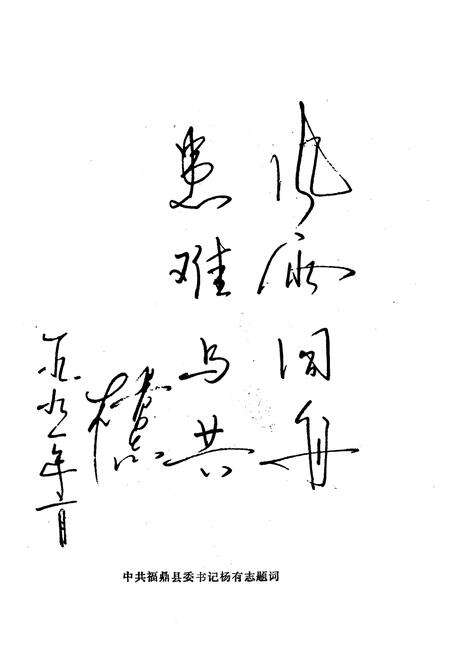 风雨同舟
患难与共
杨有志
一九九一年一月
中共福鼎县委书记杨有志题词